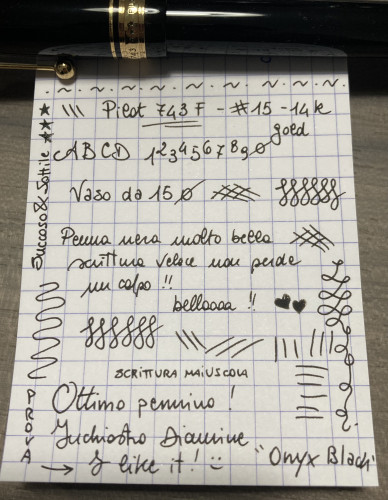 Pilot 743 F - #15 - 14k
gold
ABCD 1234567890
Vaso da 150
Penna nera molto bella
scrittura veloce non perde
un colpo !!
bellaaaa !!
SCRITTURA MAIUSCOLA
Ottimo pennino !
Inchiostro Diamine
"Onyx Black"
→ I like it! :)
Succoso & Sottile
PROVA